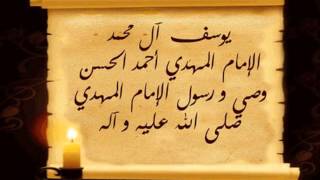 يوسف آل محمد
الإمام المهدي أحمد الحسن
وصي و رسول الإمام المهدي
صلى الله عليه و آله